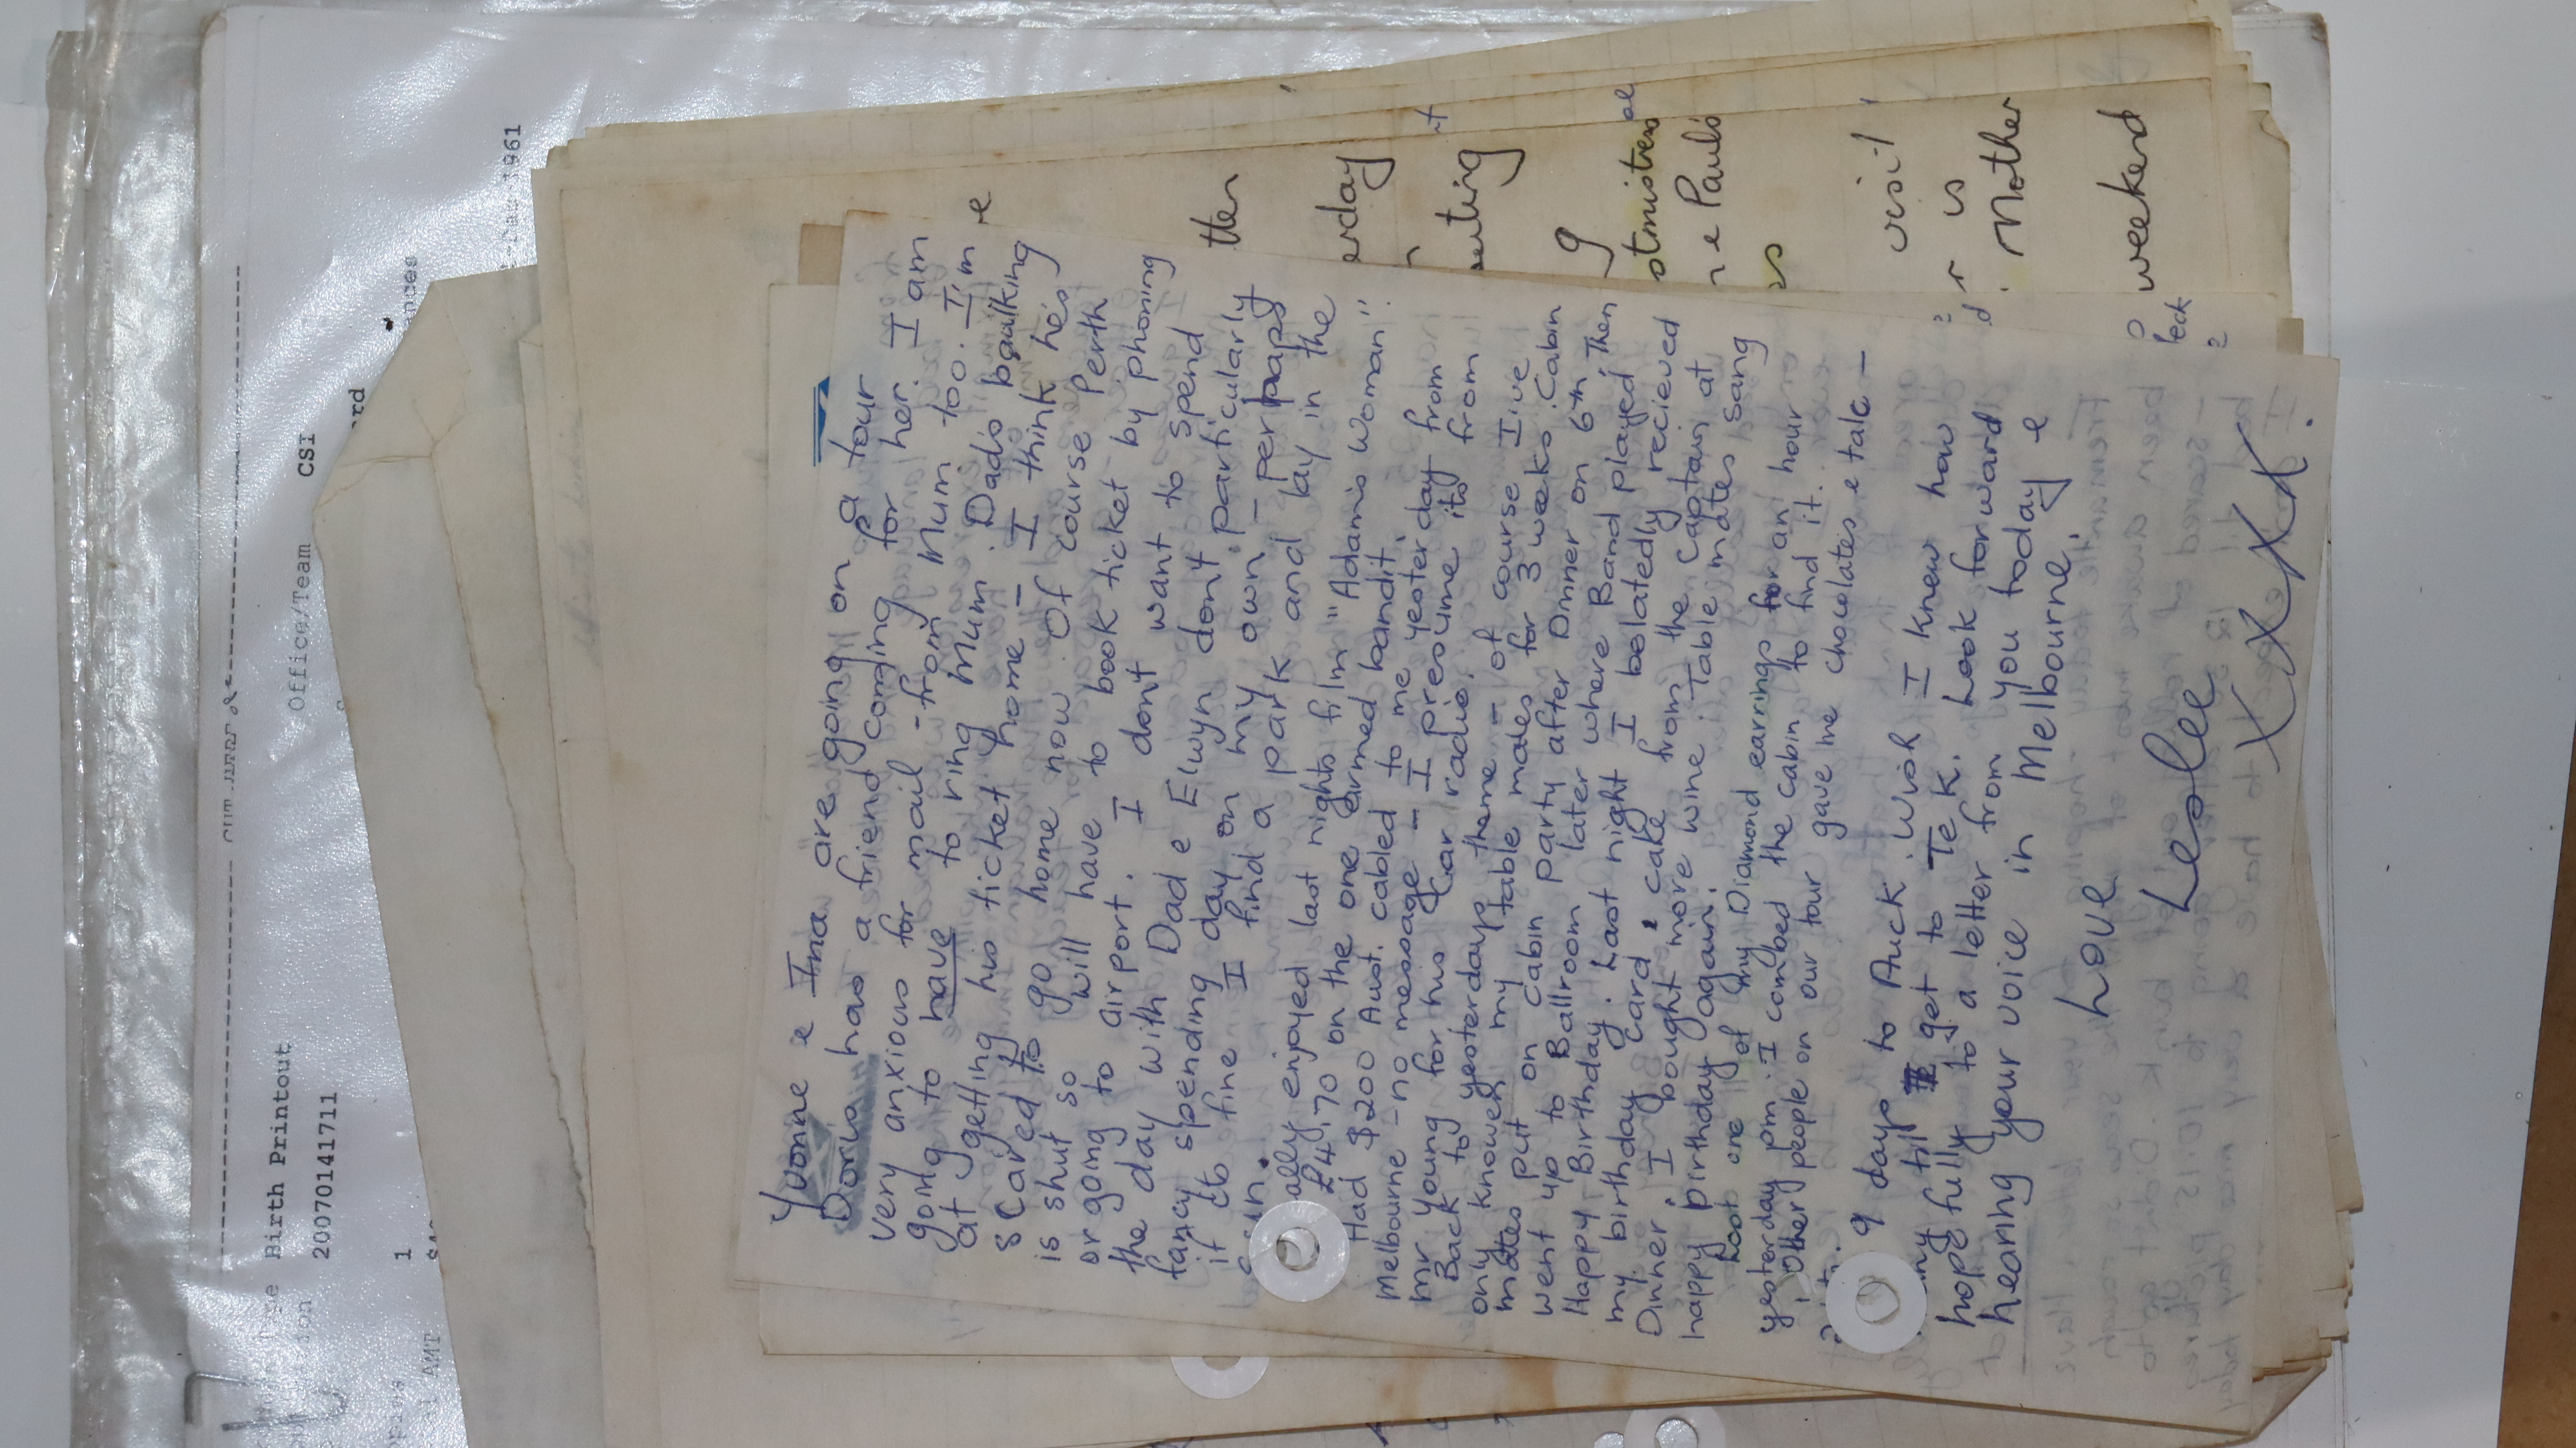 Yvonne e Ina are going on a tour
Doris has a friend coming for her. I am
very anxious for mail - from Mum too. I'm
going to have to ring Mum. Dad's baulking
at getting his ticket home - I think he's
scared to go home now. Of course Perth
is shut so will have to book ticket by phoning
or going to airport. I dont want to spend
the day with Dad e Elwyn dont particularly
fancy spending day on my own - perhaps
if its fine I find a park and lay in the
sun.
ally enjoyed last nights film "Adam's Woman".
£4.70 on the one armed bandit.
Had $200 Aust. cabled to me yesterday from
Melbourne - no message - I presume its from
Mr Young for his car radio.
Back to yesterdays theme - of course I've
only knowen my table mates for 3 weeks. Cabin
mates put on cabin party after Dinner on 6th Then
went up to Ballroom later where Band played
Happy Birthday. Last night I belatedly recieved
my birthday card e cake from the Captain at
Dinner. I bought more wine. Table mates sang
happy birthday again.
Lost one of my Diamond earrings for an hour
yesterday pm. I combed the cabin to find it.
Other people on our tour gave me chocolates e talc -
9 days to Auck. Wish I knew how
til get to Te K. Look forward
hopefully to a letter from you today e
hearing your voice in Melbourne.
Love
Leslee
X X X X.
tten
erday
9
ne Paul's
visit
r us
Mother
weekend
Birth Printout
2007014​1711
1
Office/Team CSI
1961